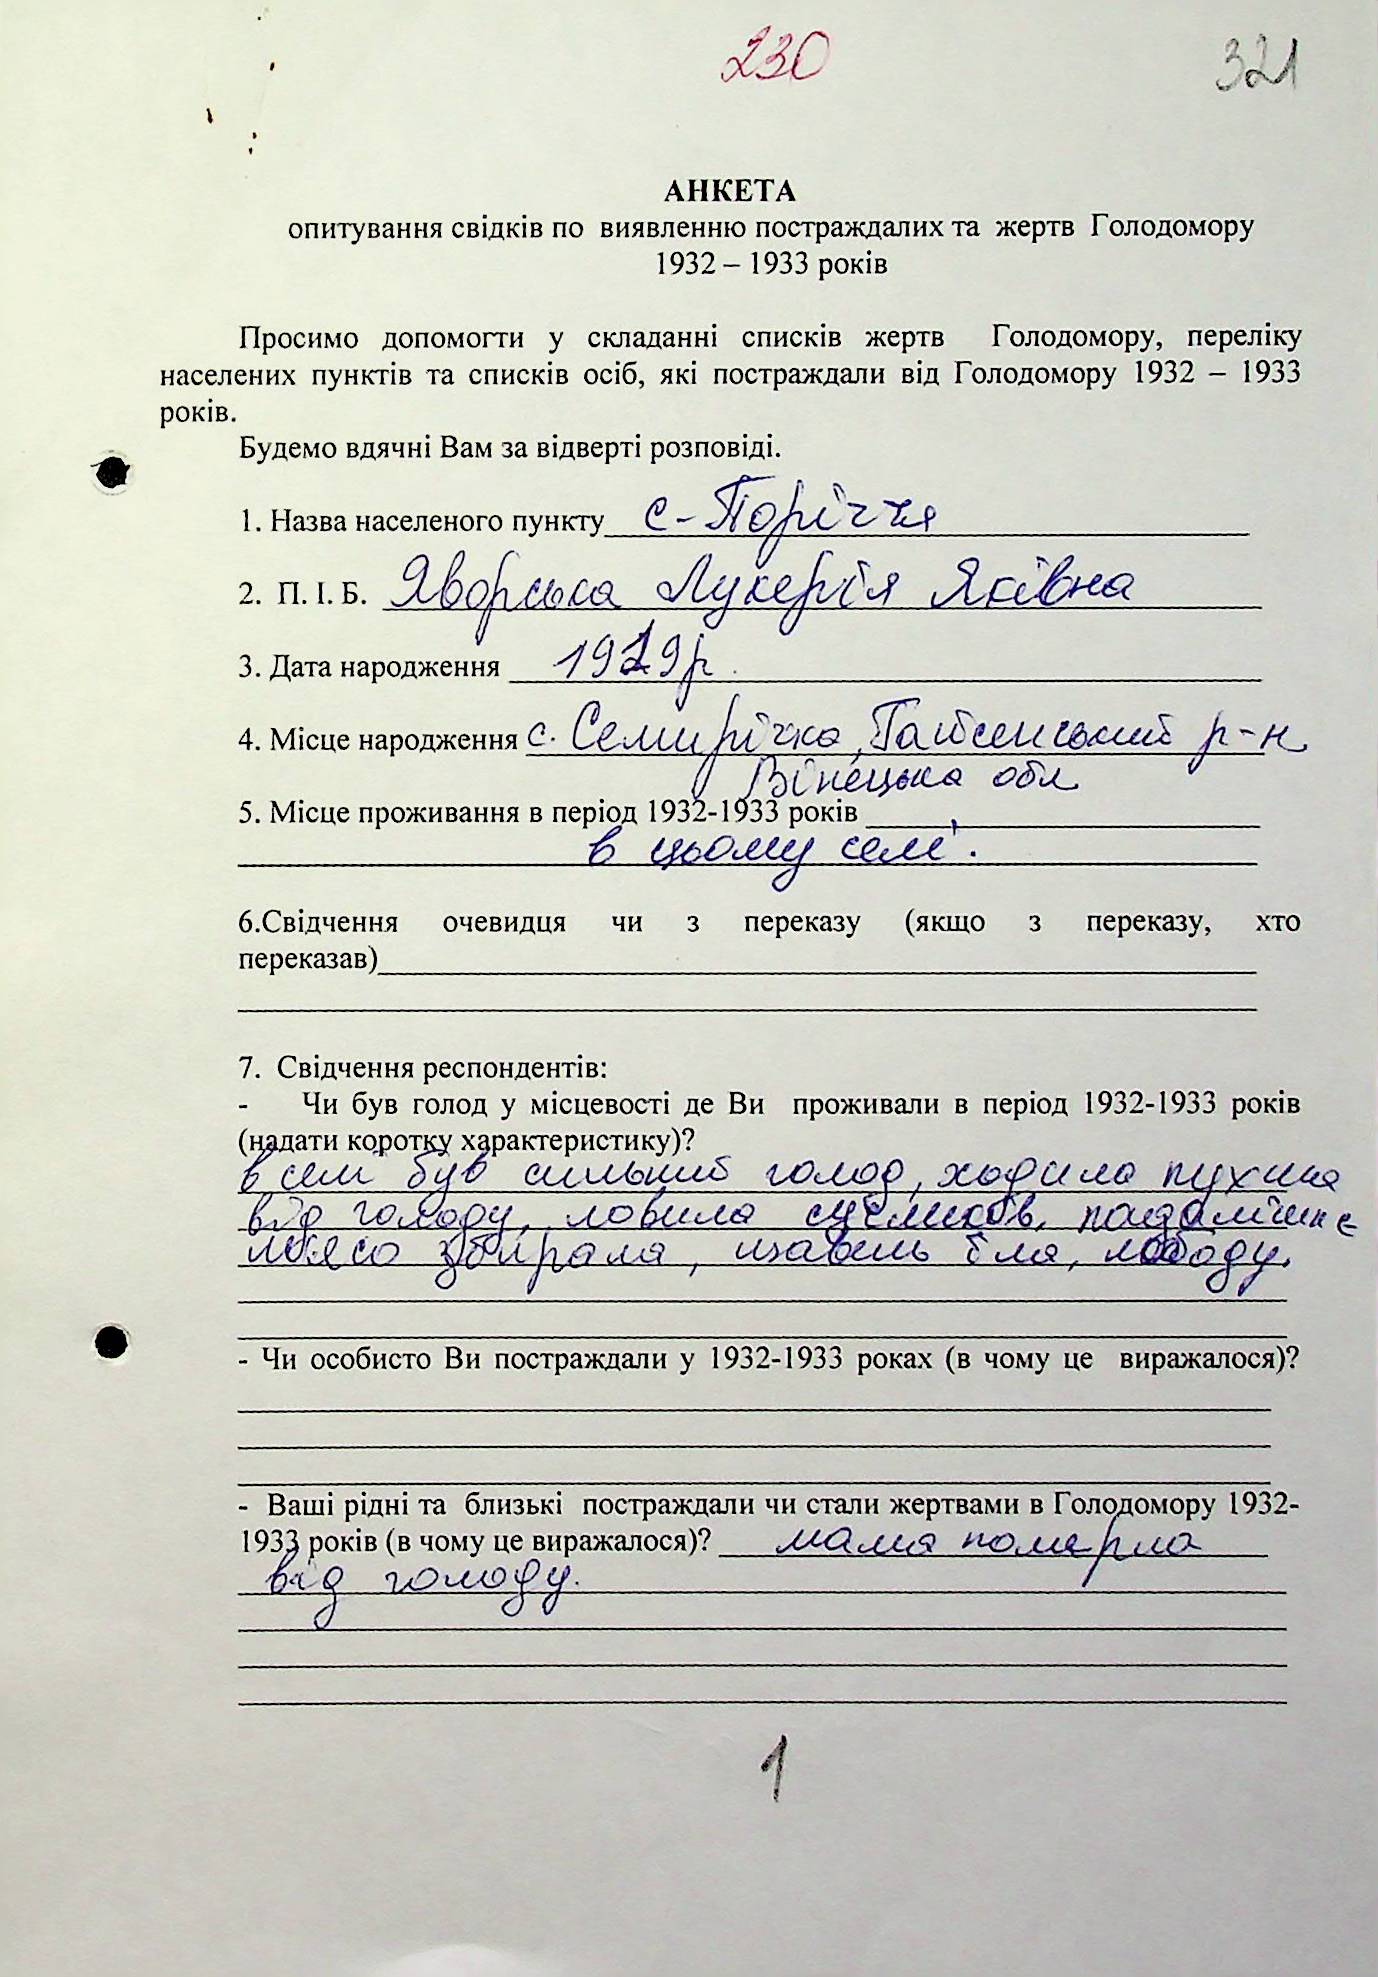 230
321
АНКЕТА
опитування свідків по виявленню постраждалих та жертв Голодомору
1932 – 1933 років
Просимо допомогти у складанні списків жертв Голодомору, переліку
населених пунктів та списків осіб, які постраждали від Голодомору 1932 – 1933
років.
Будемо вдячні Вам за відверті розповіді.
1. Назва населеного пункту с-Поріччя
2. П. І. Б. Яворська Лукерія Яківна
3. Дата народження 1919р.
4. Місце народження с. Семирічка, Гайсенський р-н
Вінецька обл
5. Місце проживання в період 1932-1933 років
в цьому селі.
6.Свідчення очевидця чи з переказу (якщо з переказу, хто
переказав)
7. Свідчення респондентів:
- Чи був голод у місцевості де Ви проживали в період 1932-1933 років
(надати коротку характеристику)?
в селі був сильний голод, ходила пухила
від голоду, ловила
мясо збирала, щавель їла, лободу.
- Чи особисто Ви постраждали у 1932-1933 роках (в чому це виражалося)?
- Ваші рідні та близькі постраждали чи стали жертвами в Голодомору 1932-
1933 років (в чому це виражалося)? мама померла
від голоду.
1